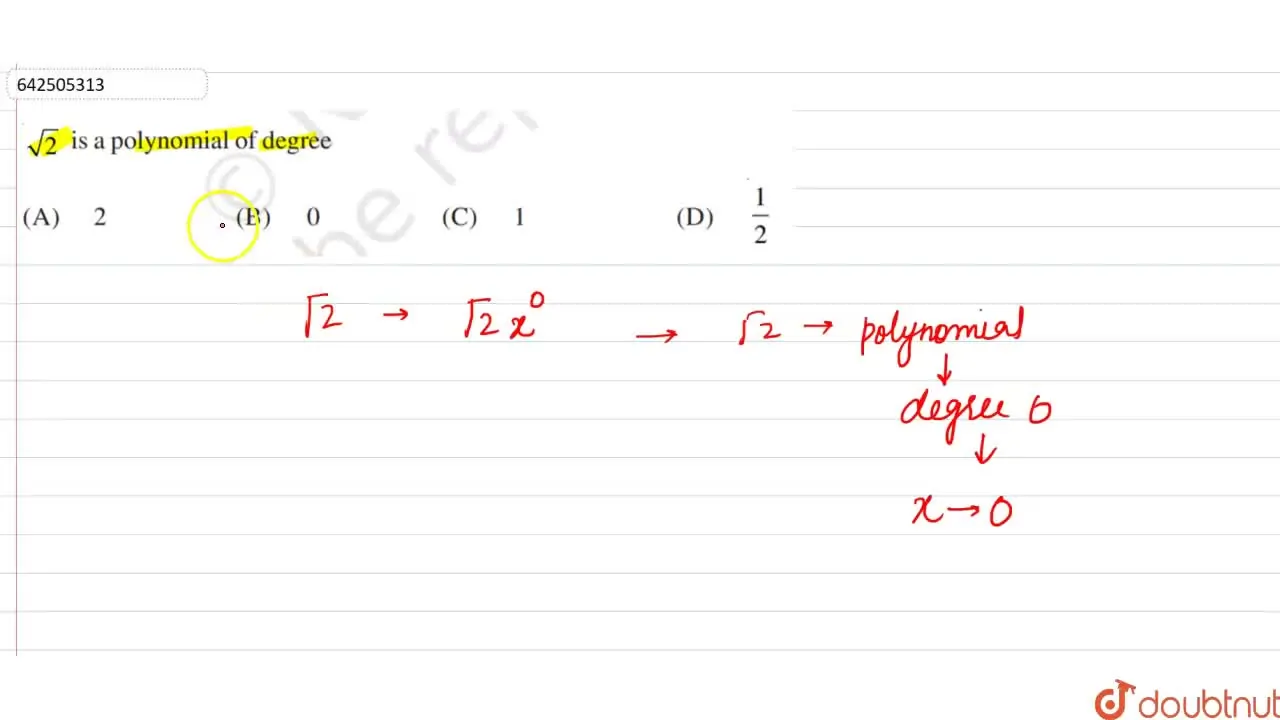 642505313
√2 is a polynomial of degree
(A) 2 (B) 0 (C) 1 (D) 1/2
√2 → √2 x⁰ → √2 → polynomial
↓
degree 0
↓
x → 0
doubtnut